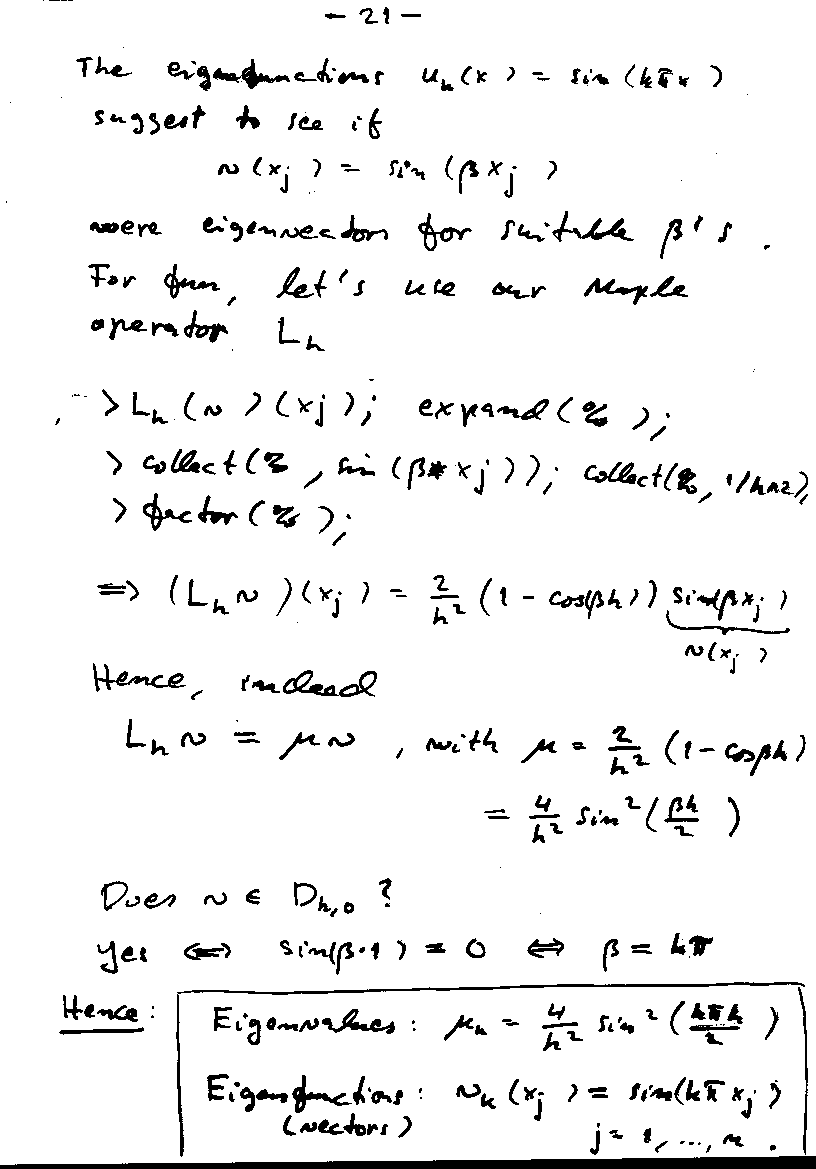 - 21 -
The eigenfunctions u_k(x) = sin(kπx)
suggest to see if
v(x_j) = sin(βx_j)
were eigenvectors for suitable β's.
For fun, let's use our Maple
operator L_h
> L_h(v)(xj); expand(%);
> collect(%, sin(β*xj)); collect(%, 1/h^2);
> factor(%);
⇒ (L_h v)(x_j) = 2/h² (1 - cos(βh)) sin(βx_j)
v(x_j)
Hence, indeed
L_h v = μv, with μ = 2/h² (1 - cosβh)
= 4/h² sin²(βh/2)
Does v ∈ D_h,0 ?
Yes ⇔ sin(β·1) = 0 ⇔ β = kπ
Hence: Eigenvalues: μ_k = 4/h² sin²(kπh/2)
Eigenfunctions: v_k(x_j) = sin(kπx_j)
(vectors) j = 1, ..., n.